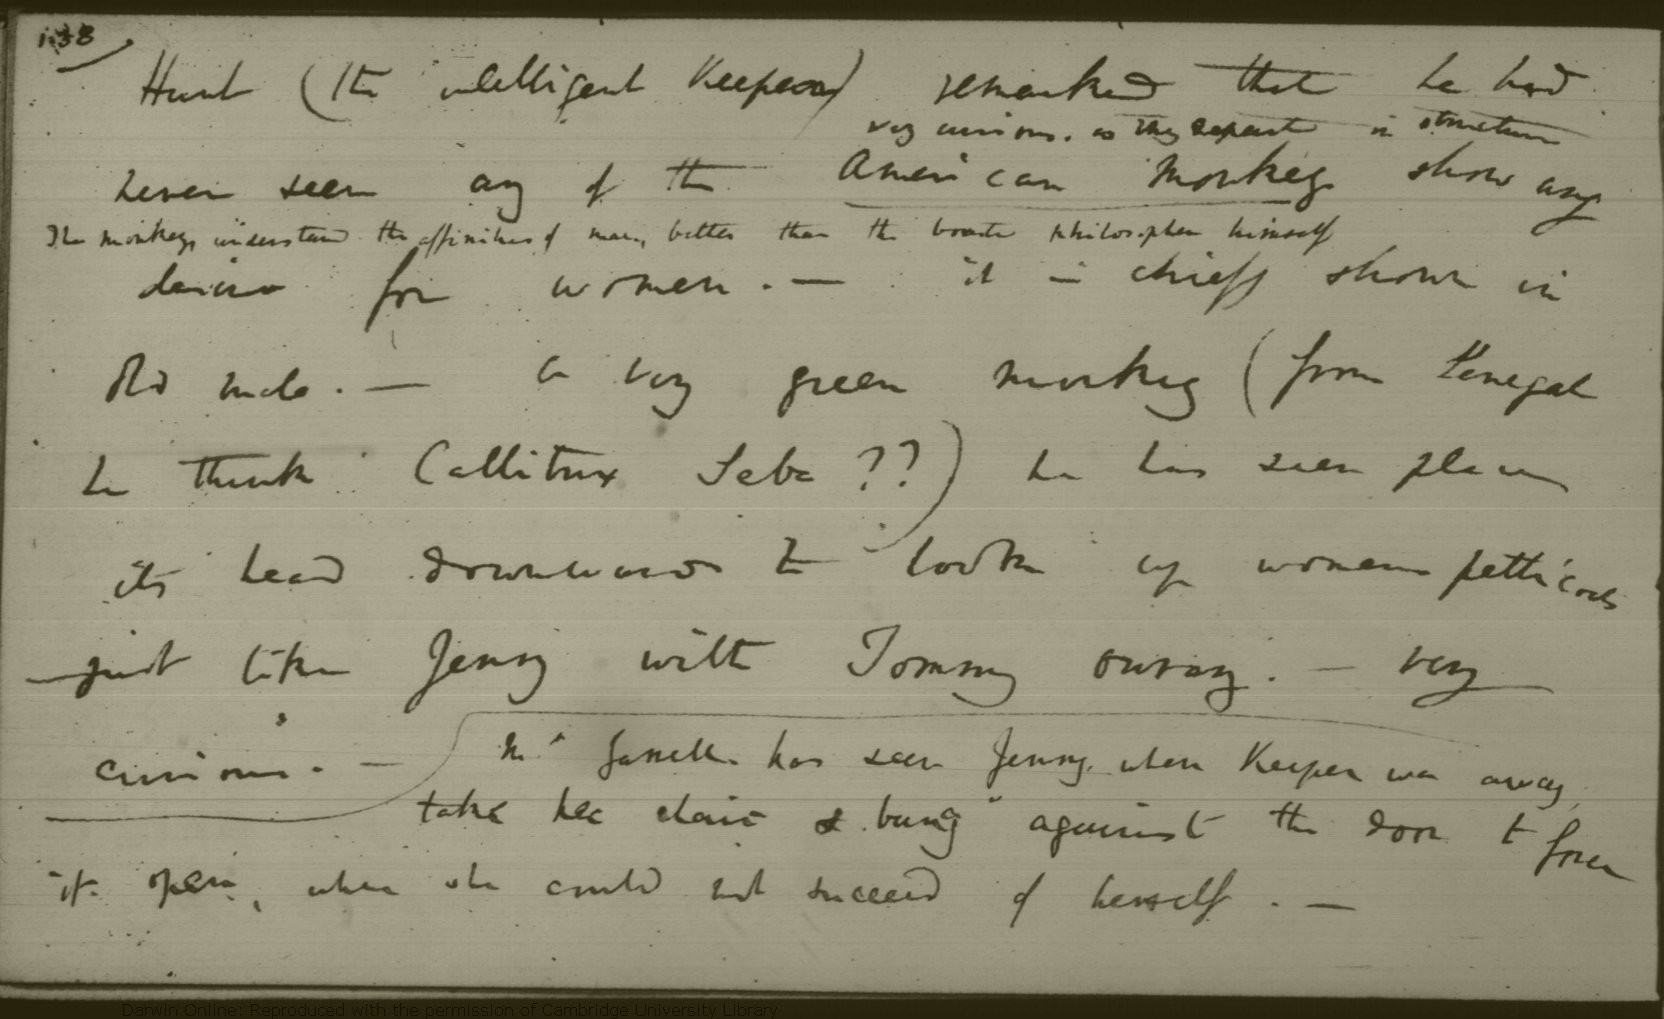 138
Hunt (the intelligent Keeper) remarked that he had
very curious. as they depart in structure
never seen any of the American monkeys show any
The monkeys understand the affinities of man, better than the boasted philosopher himself
desire for women. — it is chiefly shown in
old male. — a very green monkey (from Senegal
he thinks Callitrix Seba ??) he has seen place
its head downwards to look up women petticoats
just like Jenny with Tommy ourang. — very
curious. — Mr has seen Jenny, when Keeper was away,
take her chair & bang against the door to force
it open, when she could not succeed of herself. —
Darwin Online: Reproduced with the permission of Cambridge University Library